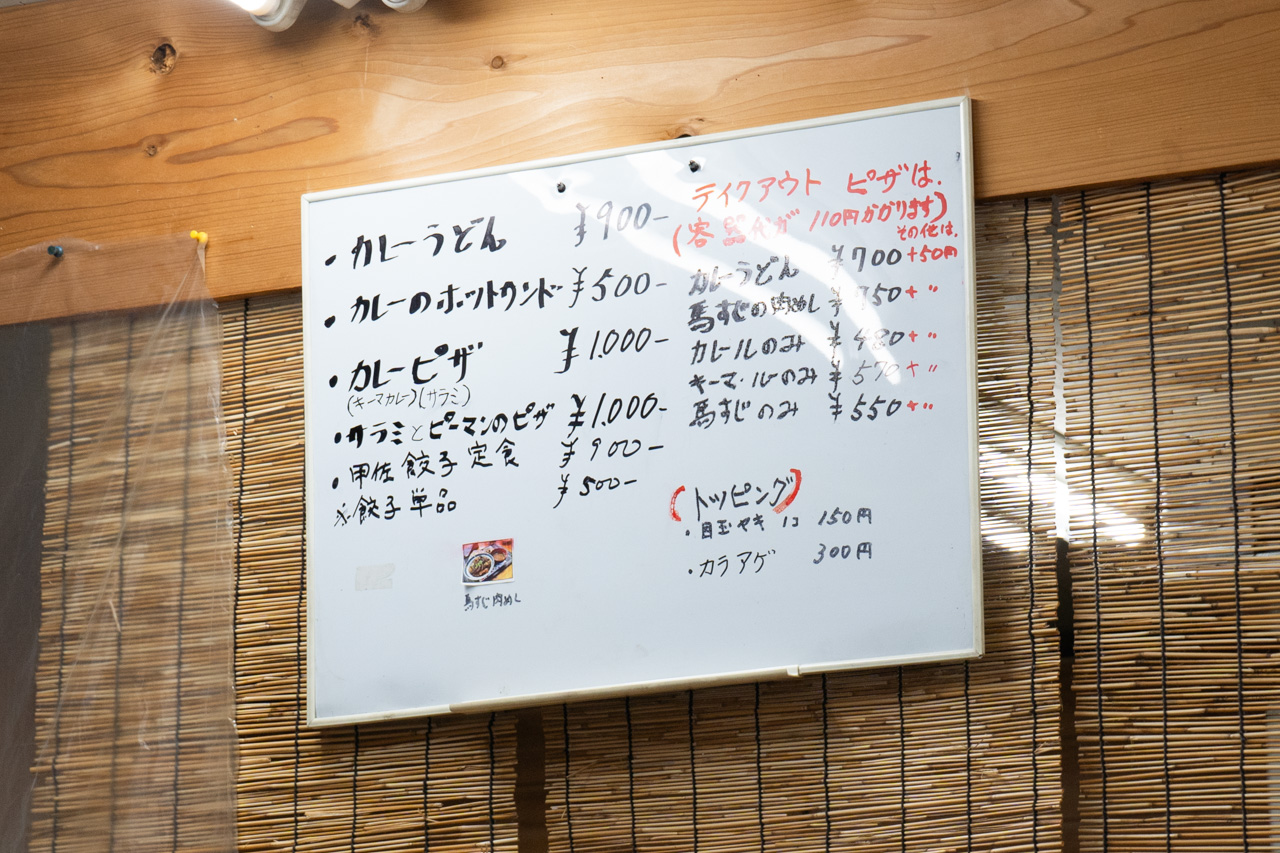 ・カレーうどん ¥900-
・カレーのホットサンド ¥500-
・カレーピザ ¥1.000-
(キーマカレー)(サラミ)
・サラミとピーマンのピザ ¥1.000-
・甲佐餃子定食 ¥900-
※餃子単品 ¥500-
馬すじ肉めし
テイクアウト ピザは.
(容器代が 110円かかります)
その他は.
カレーうどん ¥700+50円
馬すじの肉めし ¥750+〃
カレールのみ ¥480+〃
キーマ・ルーのみ ¥570+〃
馬すじのみ ¥550+〃
(トッピング)
・目玉ヤキ 1コ 150円
・カラアゲ 300円